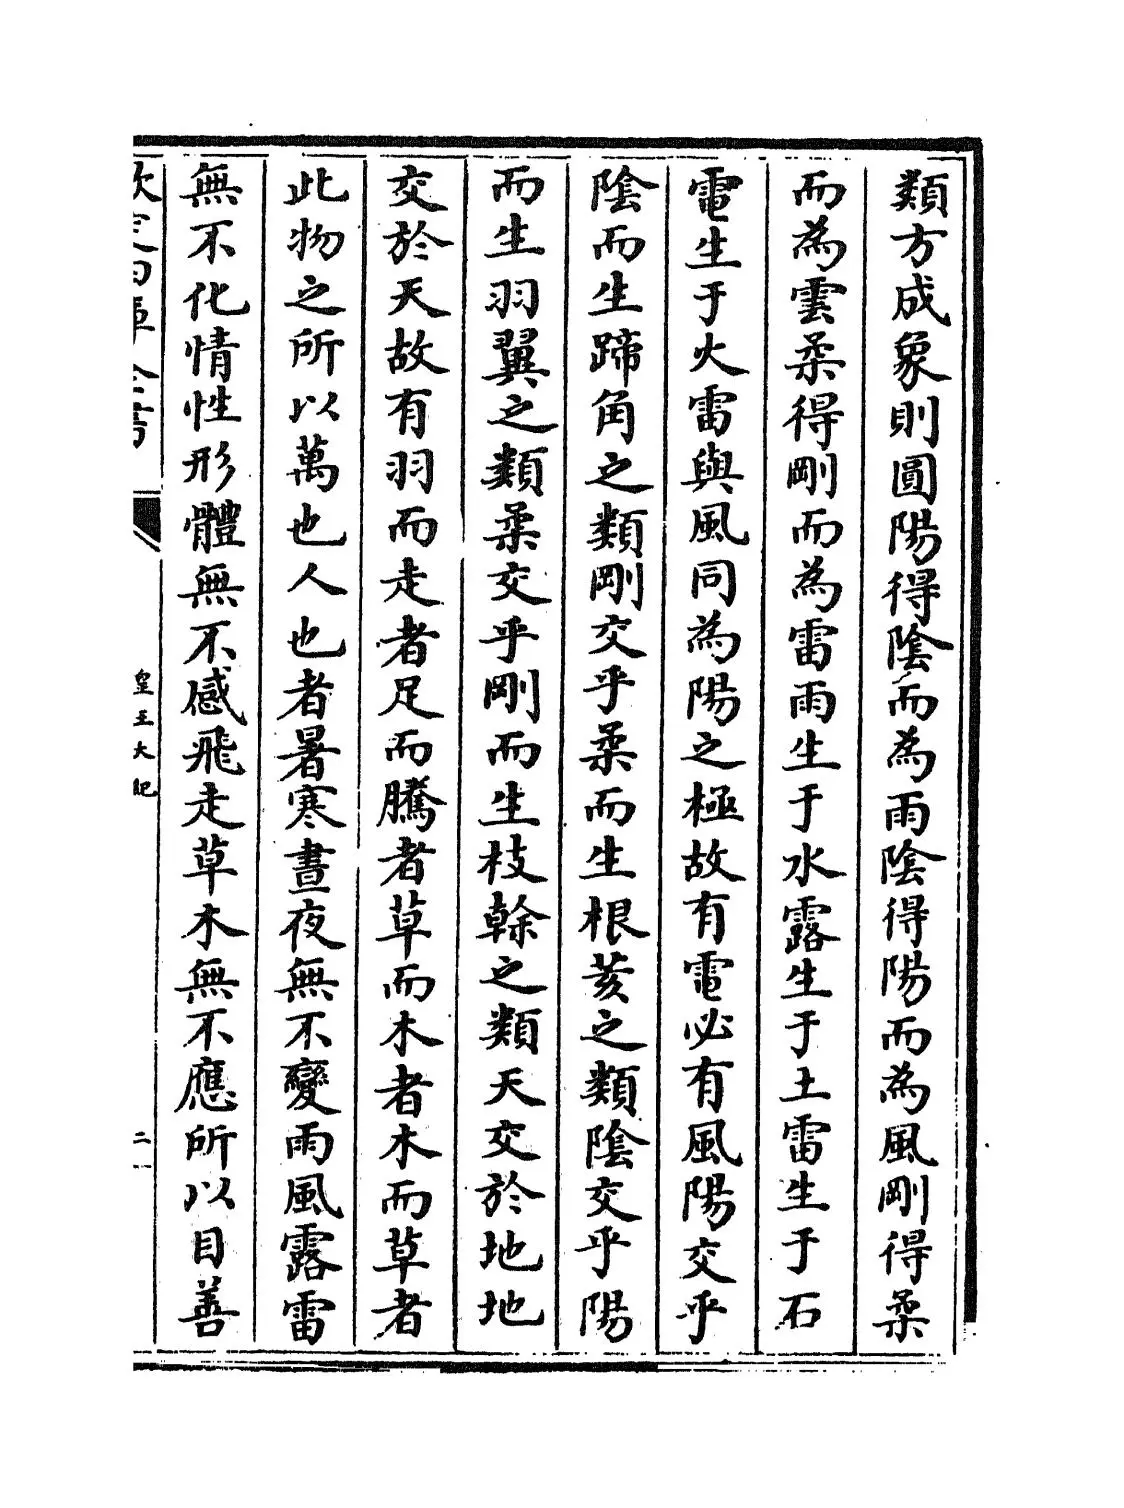 類方成象則圓陽得陰而為雨陰得陽而為風剛得柔
而為雲柔得剛而為雷雨生于水露生于土雷生于石
電生于火雷與風同為陽之極故有電必有風陽交乎
陰而生蹄角之類剛交乎柔而生根荄之類陰交乎陽
而生羽翼之類柔交乎剛而生枝榦之類天交於地地
交於天故有羽而走者足而騰者草而木者木而草者
此物之所以萬也人也者暑寒晝夜無不變雨風露雷
無不化情性形體無不感飛走草木無不應所以目善
欽定四庫全書
皇王大紀
二